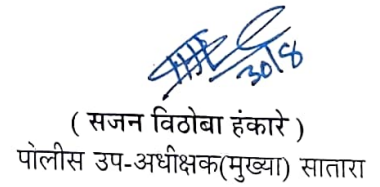 30/8
( सजन विठोबा हंकारे )
पोलीस उप-अधीक्षक(मुख्या) सातारा